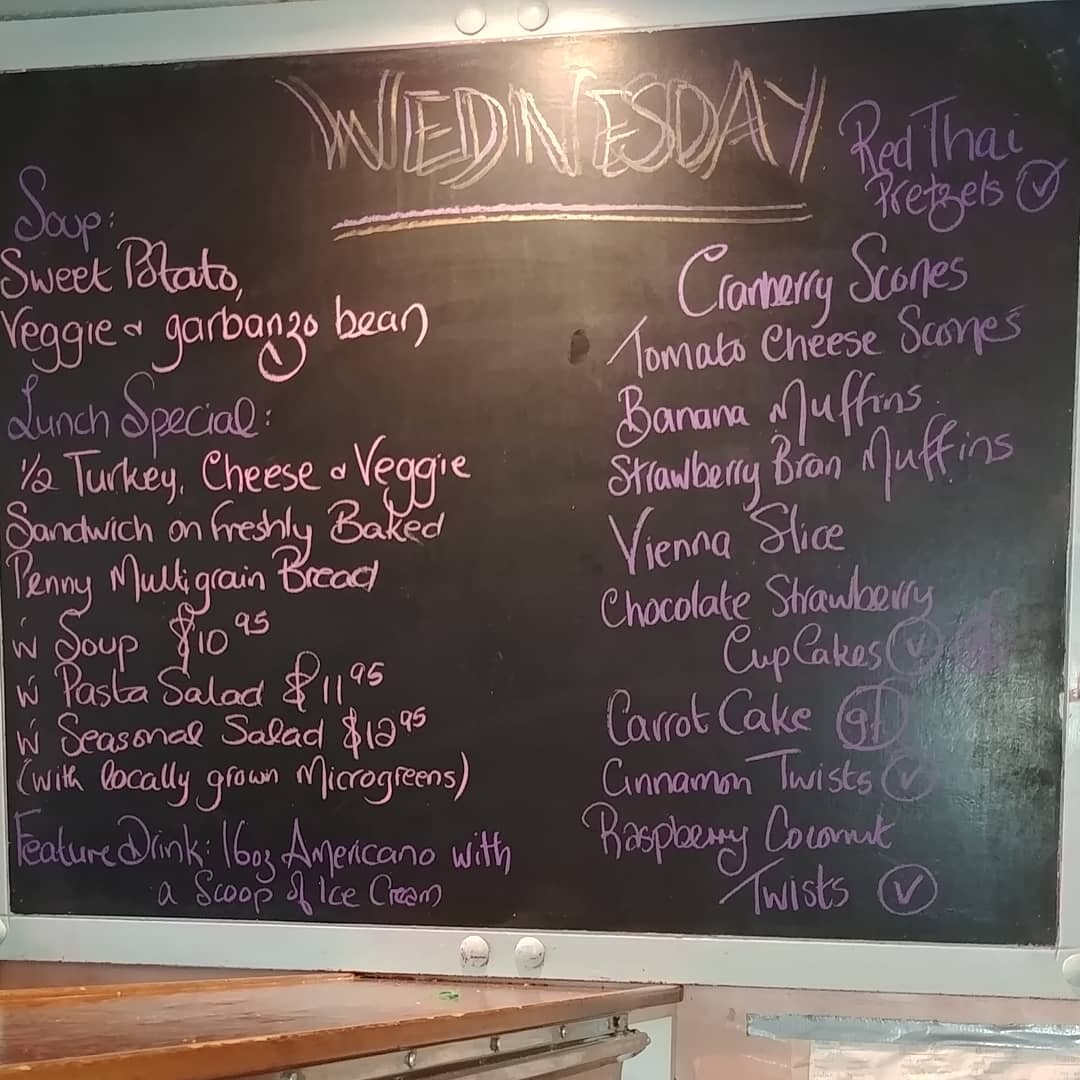 WEDNESDAY
Soup:
Sweet Potato,
Veggie & garbanzo bean
Lunch Special:
1/2 Turkey, Cheese & Veggie
Sandwich on freshly Baked
Penny Multigrain Bread
w/ Soup $10.95
w/ Pasta Salad $11.95
w/ Seasonal Salad $12.95
(with locally grown Microgreens)
Feature Drink: 16oz Americano with
a Scoop of Ice Cream
Red Thai
Pretzels V
Cranberry Scones
Tomato Cheese Scones
Banana Muffins
Strawberry Bran Muffins
Vienna Slice
Chocolate Strawberry
CupCakes V
Carrot Cake gf
Cinnamon Twists V
Raspberry Coconut
Twists V